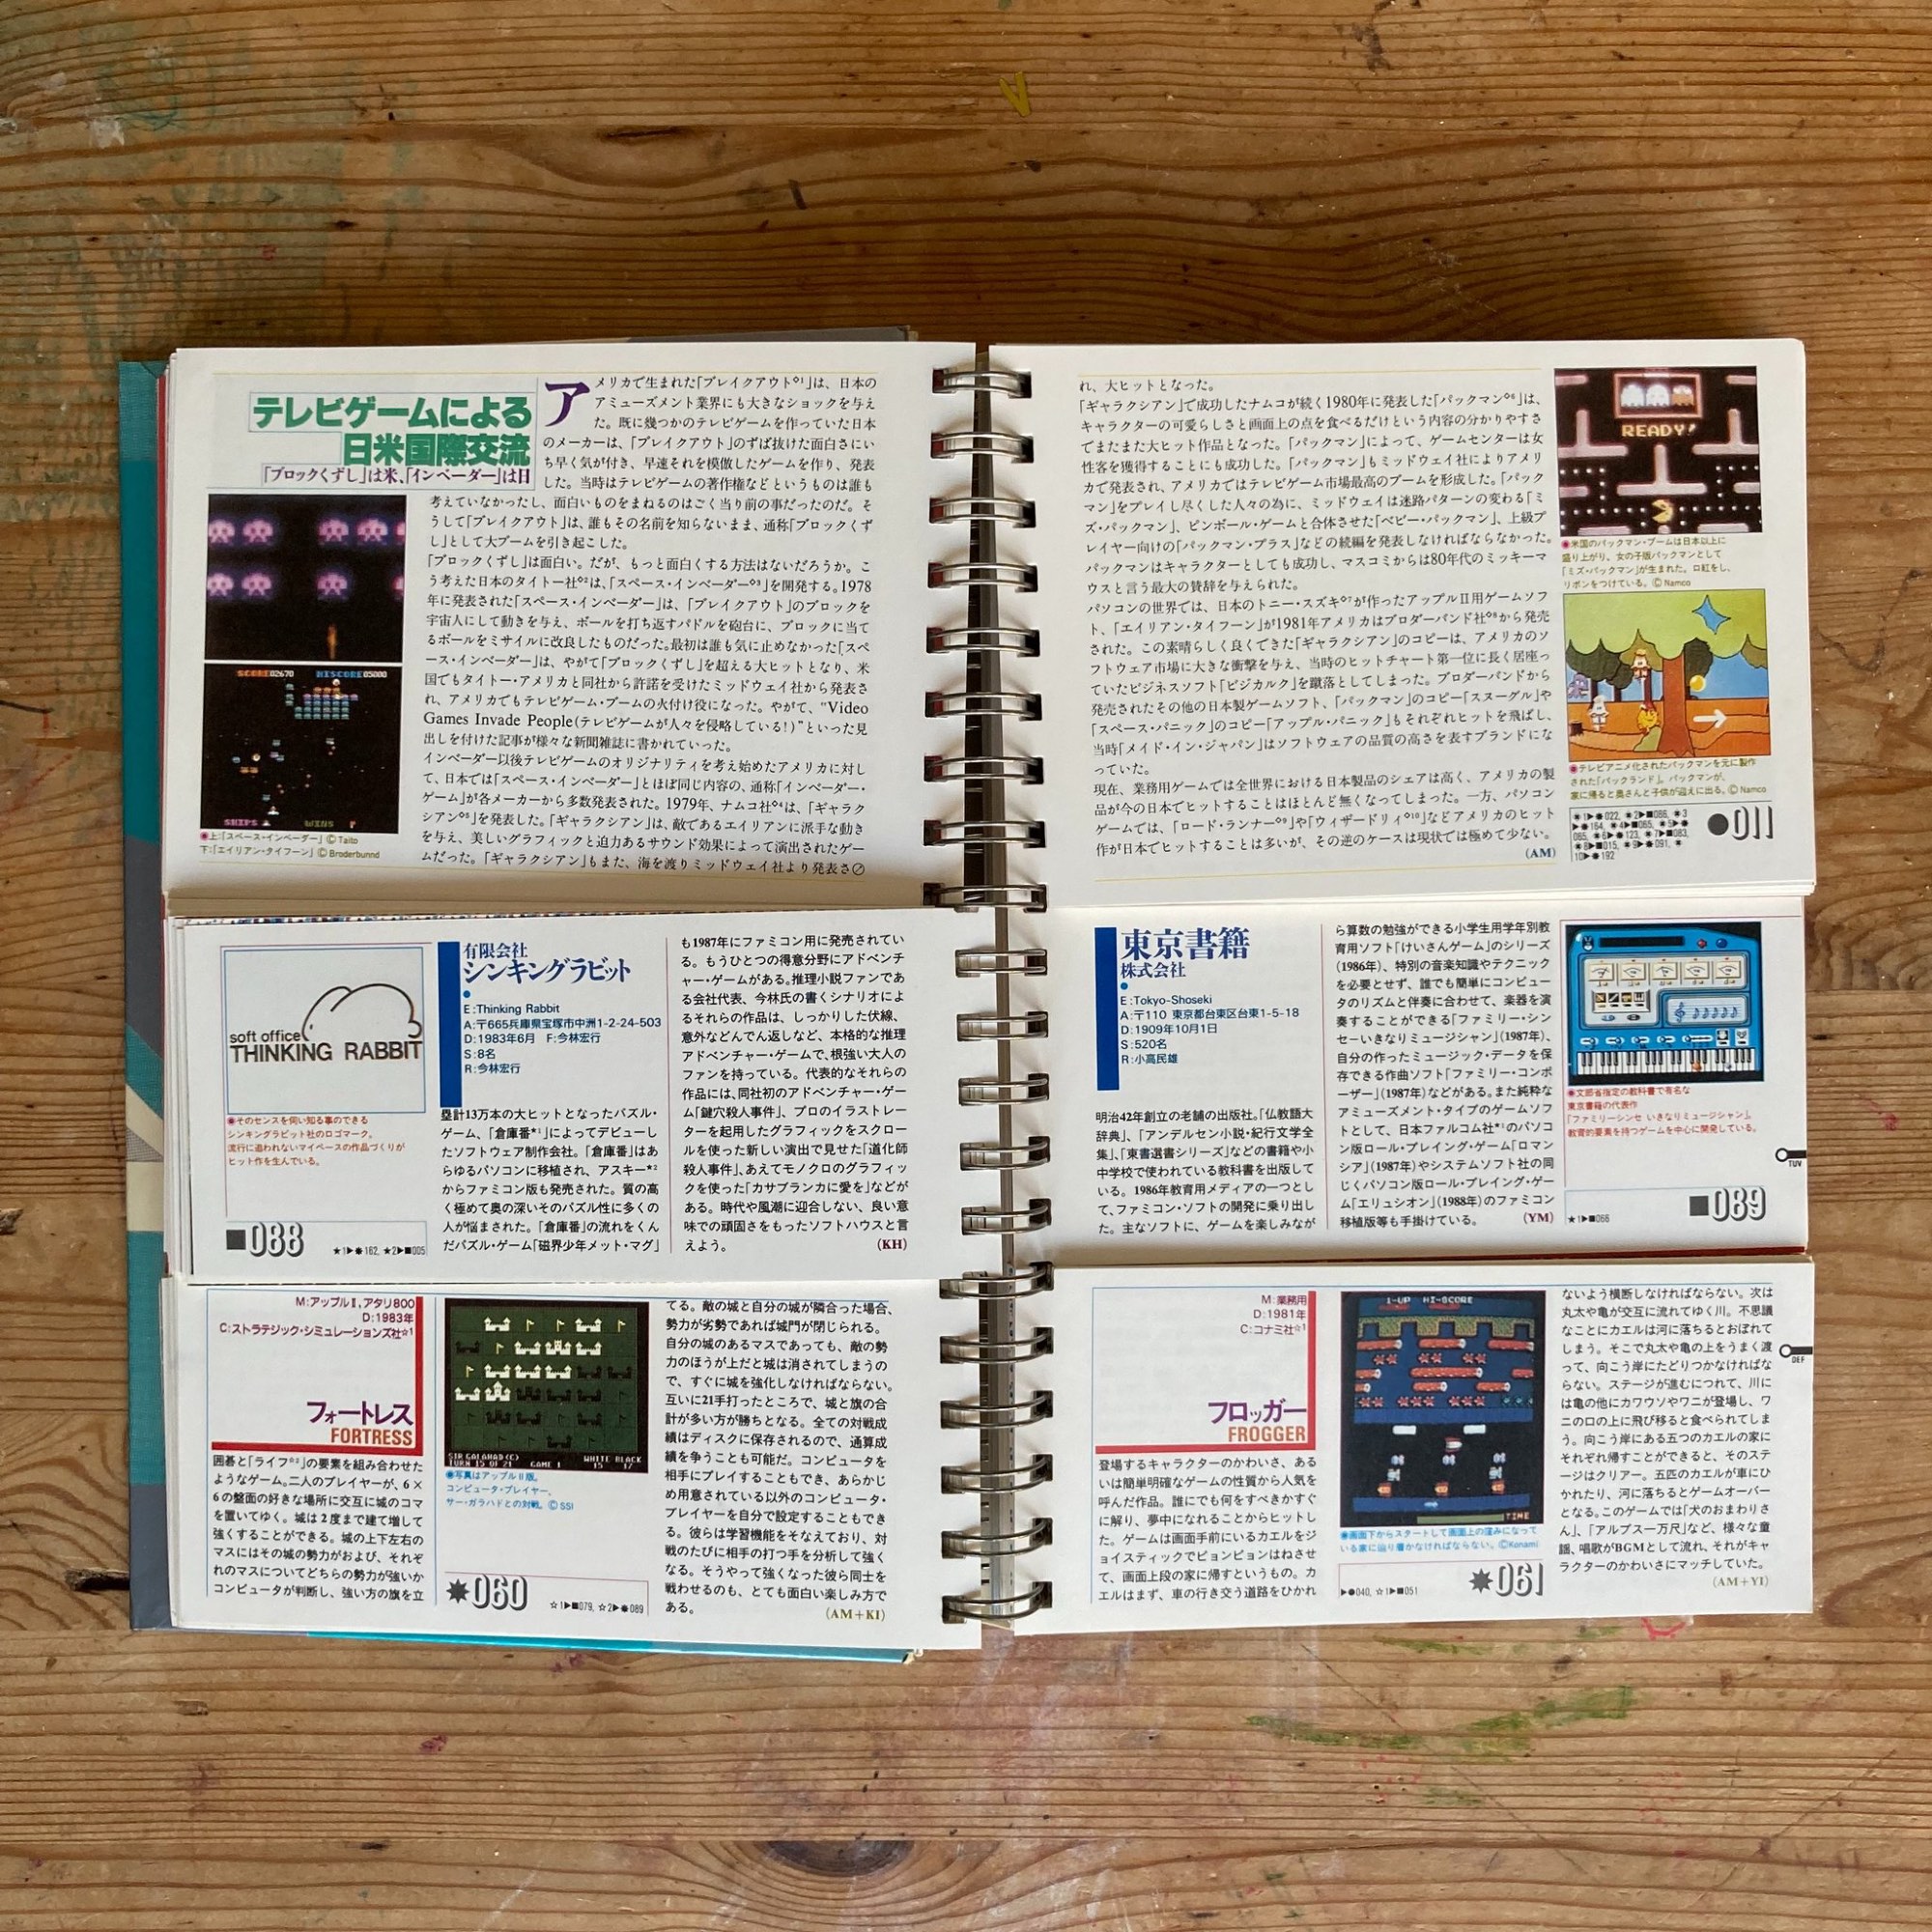 テレビゲームによる
日米国際交流
「ブロックくずし」は米、「インベーダー」は日
アメリカで生まれた「ブレイクアウト◇1」は、日本の
アミューズメント業界にも大きなショックを与え
た。既に幾つかのテレビゲームを作っていた日本
のメーカーは、「ブレイクアウト」のずば抜けた面白さにい
ち早く気が付き、早速それを模倣したゲームを作り、発表
した。当時はテレビゲームの著作権などというものは誰も
考えていなかったし、面白いものをまねるのはごく当り前の事だったのだ。そ
うして「ブレイクアウト」は、誰もその名前を知らないまま、通称「ブロックくず
し」として大ブームを引き起こした。
「ブロックくずし」は面白い。だが、もっと面白くする方法はないだろうか。こ
う考えた日本のタイトー社◇2は、「スペース・インベーダー◇3」を開発する。1978
年に発表された「スペース・インベーダー」は、「ブレイクアウト」のブロックを
宇宙人にして動きを与え、ボールを打ち返すパドルを砲台に、ブロックに当て
るボールをミサイルに改良したものだった。最初は誰も気に止めなかった「スペ
ース・インベーダー」は、やがて「ブロックくずし」を超える大ヒットとなり、米
国でもタイトー・アメリカと同社から許諾を受けたミッドウェイ社から発表さ
れ、アメリカでもテレビゲーム・ブームの火付け役になった。やがて、“Video
Games Invade People(テレビゲームが人々を侵略している!)”といった見
出しを付けた記事が様々な新聞雑誌に書かれていった。
インベーダー以後テレビゲームのオリジナリティを考え始めたアメリカに対し
て、日本では「スペース・インベーダー」とほぼ同じ内容の、通称「インベーダー・
ゲーム」が各メーカーから多数発表された。1979年、ナムコ社◇4は、「ギャラク
シアン◇5」を発表した。「ギャラクシアン」は、敵であるエイリアンに派手な動き
を与え、美しいグラフィックと迫力あるサウンド効果によって演出されたゲー
ムだった。「ギャラクシアン」もまた、海を渡りミッドウェイ社より発表さ
SCORE02670 HISCORE05000
SHIPS WINS
●上:「スペース・インベーダー」 © Taito
下:「エイリアン・タイフーン」 © Broderbunnd
れ、大ヒットとなった。
「ギャラクシアン」で成功したナムコが続く1980年に発表した「パックマン◇6」は、
キャラクターの可愛らしさと画面上の点を食べるだけという内容の分かりやすさ
でまたまた大ヒット作品となった。「パックマン」によって、ゲームセンターは女
性客を獲得することにも成功した。「パックマン」もミッドウェイ社によりアメリ
カで発表され、アメリカではテレビゲーム市場最高のブームを形成した。「パック
マン」をプレイし尽くした人々の為に、ミッドウェイは迷路パターンの変わる「ミ
ズ・パックマン」、ピンボール・ゲームと合体させた「ベビー・パックマン」、上級プ
レイヤー向けの「パックマン・プラス」などの続編を発表しなければならなかった。
パックマンはキャラクターとしても成功し、マスコミからは80年代のミッキーマ
ウスと言う最大の賛辞を与えられた。
パソコンの世界では、日本のトニー・スズキ◇7が作ったアップルII用ゲームソフ
ト、「エイリアン・タイフーン」が1981年アメリカはブロダーバンド社◇8から発売
された。この素晴らしく良くできた「ギャラクシアン」のコピーは、アメリカのソ
フトウェア市場に大きな衝撃を与え、当時のヒットチャート第一位に長く居座っ
ていたビジネスソフト「ビジカルク」を蹴落としてしまった。ブロダーバンドから
発売されたその他の日本製ゲームソフト、「パックマン」のコピー「スヌーグル」や
「スペース・パニック」のコピー「アップル・パニック」もそれぞれヒットを飛ばし、
当時「メイド・イン・ジャパン」はソフトウェアの品質の高さを表すブランドにな
っていた。
現在、業務用ゲームでは全世界における日本製品のシェアは高く、アメリカの製
品が今の日本でヒットすることはほとんど無くなってしまった。一方、パソコン
ゲームでは、「ロード・ランナー◇9」や「ウィザードリィ◇10」などアメリカのヒット
作が日本でヒットすることは多いが、その逆のケースは現状では極めて少ない。
(AM)
READY!
●米国のパックマン・ブームは日本以上に
盛り上がり、女の子版パックマンとして
「ミズ・パックマン」が生まれた。口紅をし、
リボンをつけている。© Namco
●テレビアニメ化されたパックマンを元に製作
された「パックランド」。パックマンが、
家に帰ると奥さんと子供が迎えに出る。© Namco
●011
soft office
THINKING RABBIT
●そのセンスを伺い知る事のできる
シンキングラビット社のロゴマーク。
流行に追われないマイペースの作品づくりが
ヒット作を生んでいる。
■088
★1▶✹162, ★2▶■005
有限会社
シンキングラビット
E:Thinking Rabbit
A:〒665兵庫県宝塚市中洲1-2-24-503
D:1983年6月 F:今林宏行
S:8名
R:今林宏行
塁計13万本の大ヒットとなったパズル・
ゲーム、「倉庫番★1」によってデビューし
たソフトウェア制作会社。「倉庫番」はあ
らゆるパソコンに移植され、アスキー★2
からファミコン版も発売された。質の高
く極めて奥の深いそのパズル性に多くの
人が悩まされた。「倉庫番」の流れをくん
だパズル・ゲーム「磁界少年メット・マグ」
も1987年にファミコン用に発売されてい
る。もうひとつの得意分野にアドベンチ
ャー・ゲームがある。推理小説ファンであ
る会社代表、今林氏の書くシナリオによ
るそれらの作品は、しっかりした伏線、
意外などんでん返しなど、本格的な推理
アドベンチャー・ゲームで、根強い大人の
ファンを持っている。代表的なそれらの
作品には、同社初のアドベンチャー・ゲー
ム「鍵穴殺人事件」、プロのイラストレー
ターを起用したグラフィックをスクロー
ルを使った新しい演出で見せた「道化師
殺人事件」、あえてモノクロのグラフィッ
クを使った「カサブランカに愛を」などが
ある。時代や風潮に迎合しない、良い意
味での頑固さをもったソフトハウスと言
えよう。 (KH)
東京書籍
株式会社
E:Tokyo-Shoseki
A:〒110 東京都台東区台東1-5-18
D:1909年10月1日
S:520名
R:小高民雄
明治42年創立の老舗の出版社。「仏教語大
辞典」、「アンデルセン小説・紀行文学全
集」、「東書選書シリーズ」などの書籍や小
中学校で使われている教科書を出版して
いる。1986年教育用メディアの一つとし
て、ファミコン・ソフトの開発に乗り出し
た。主なソフトに、ゲームを楽しみなが
ら算数の勉強ができる小学生用学年別教
育用ソフト「けいさんゲーム」のシリーズ
(1986年)、特別の音楽知識やテクニック
を必要とせず、誰でも簡単にコンピュー
タのリズムと伴奏に合わせて、楽器を演
奏することができる「ファミリー・シン
セーいきなりミュージシャン」(1987年)、
自分の作ったミュージック・データを保
存できる作曲ソフト「ファミリー・コンポ
ーザー」(1987年)などがある。また純粋な
アミューズメント・タイプのゲームソフ
トとして、日本ファルコム社★1のパソコ
ン版ロール・プレイング・ゲーム「ロマン
シア」(1987年)やシステムソフト社の同
じくパソコン版ロール・プレイング・ゲー
ム「エリュシオン」(1988年)のファミコン
移植版等も手掛けている。 (YM)
●文部省指定の教科書で有名な
東京書籍の代表作
「ファミリーシンセ いきなりミュージシャン」。
教育的要素を持つゲームを中心に開発している。
TUV
★1▶■066
■089
M:アップルII,アタリ800
D:1983年
C:ストラテジック・シミュレーションズ社☆1
フォートレス
FORTRESS
囲碁と「ライフ☆2」の要素を組み合わせた
ようなゲーム。二人のプレイヤーが、6×
6の盤面の好きな場所に交互に城のコマ
を置いてゆく。城は2度まで建て増して
強くすることができる。城の上下左右の
マスにはその城の勢力がおよび、それぞ
れのマスについてどちらの勢力が強いか
コンピュータが判断し、強い方の旗を立
SIR GALAHAD(C) WHITE BLACK
TURN 15 OF 21 GAME 1 15 17
●写真はアップルII版。
コンピュータ・プレイヤー、
サー・ガラハドとの対戦。© SSI
✹060
☆1▶■079, ☆2▶✹089
てる。敵の城と自分の城が隣合った場合、
勢力が劣勢であれば城門が閉じられる。
自分の城のあるマスであっても、敵の勢
力のほうが上だと城は消されてしまうの
で、すぐに城を強化しなければならない。
互いに21手打ったところで、城と旗の合
計が多い方が勝ちとなる。全ての対戦成
績はディスクに保存されるので、通算成
績を争うことも可能だ。コンピュータを
相手にプレイすることもでき、あらかじ
め用意されている以外のコンピュータ・
プレイヤーを自分で設定することもでき
る。彼らは学習機能をそなえており、対
戦のたびに相手の打つ手を分析して強く
なる。そうやって強くなった彼ら同士を
戦わせるのも、とても面白い楽しみ方で
ある。 (AM+KI)
M:業務用
D:1981年
C:コナミ社☆1
フロッガー
FROGGER
登場するキャラクターのかわいさ、ある
いは簡単明確なゲームの性質から人気を
呼んだ作品。誰にでも何をすべきかすぐ
に解り、夢中になれることからヒットし
た。ゲームは画面手前にいるカエルをジ
ョイスティックでピョンピョンはねさせ
て、画面上段の家に帰すというもの。カ
エルはまず、車の行き交う道路をひかれ
1-UP HI-SCORE
TIME
●画面下からスタートして画面上の窪みになって
いる家に辿り着かなければならない。©Konami
▶●040, ☆1▶■051
✹061
ないよう横断しなければならない。次は
丸太や亀が交互に流れてゆく川。不思議
なことにカエルは河に落ちるとおぼれて
しまう。そこで丸太や亀の上をうまく渡
って、向こう岸にたどりつかなければな
らない。ステージが進むにつれて、川に
は亀の他にカワウソやワニが登場し、ワ
ニの口の上に飛び移ると食べられてしま
う。向こう岸にある五つのカエルの家に
それぞれ帰すことができると、そのステ
ージはクリアー。五匹のカエルが車にひ
かれたり、河に落ちるとゲームオーバー
となる。このゲームでは「犬のおまわりさ
ん」、「アルプス一万尺」など、様々な童
謡、唱歌がBGMとして流れ、それがキャ
ラクターのかわいさにマッチしていた。
(AM+YI)
DEF